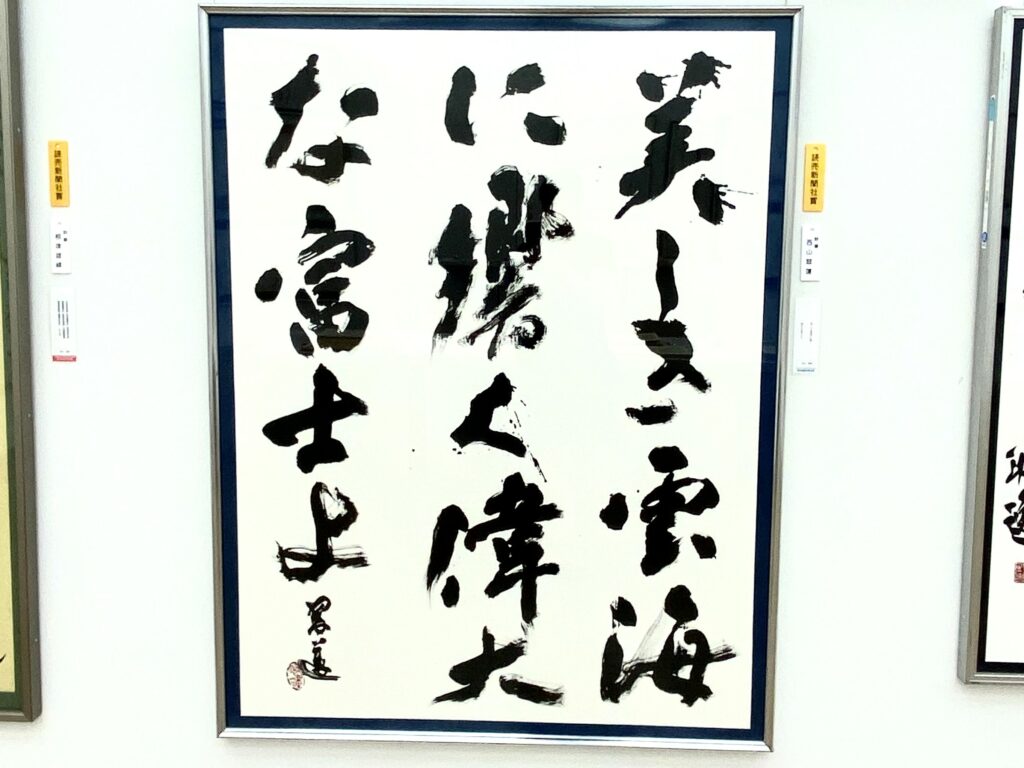 美しき雲海
に響く偉大
な富士よ
読売新聞社賞
西山
読売新聞社賞